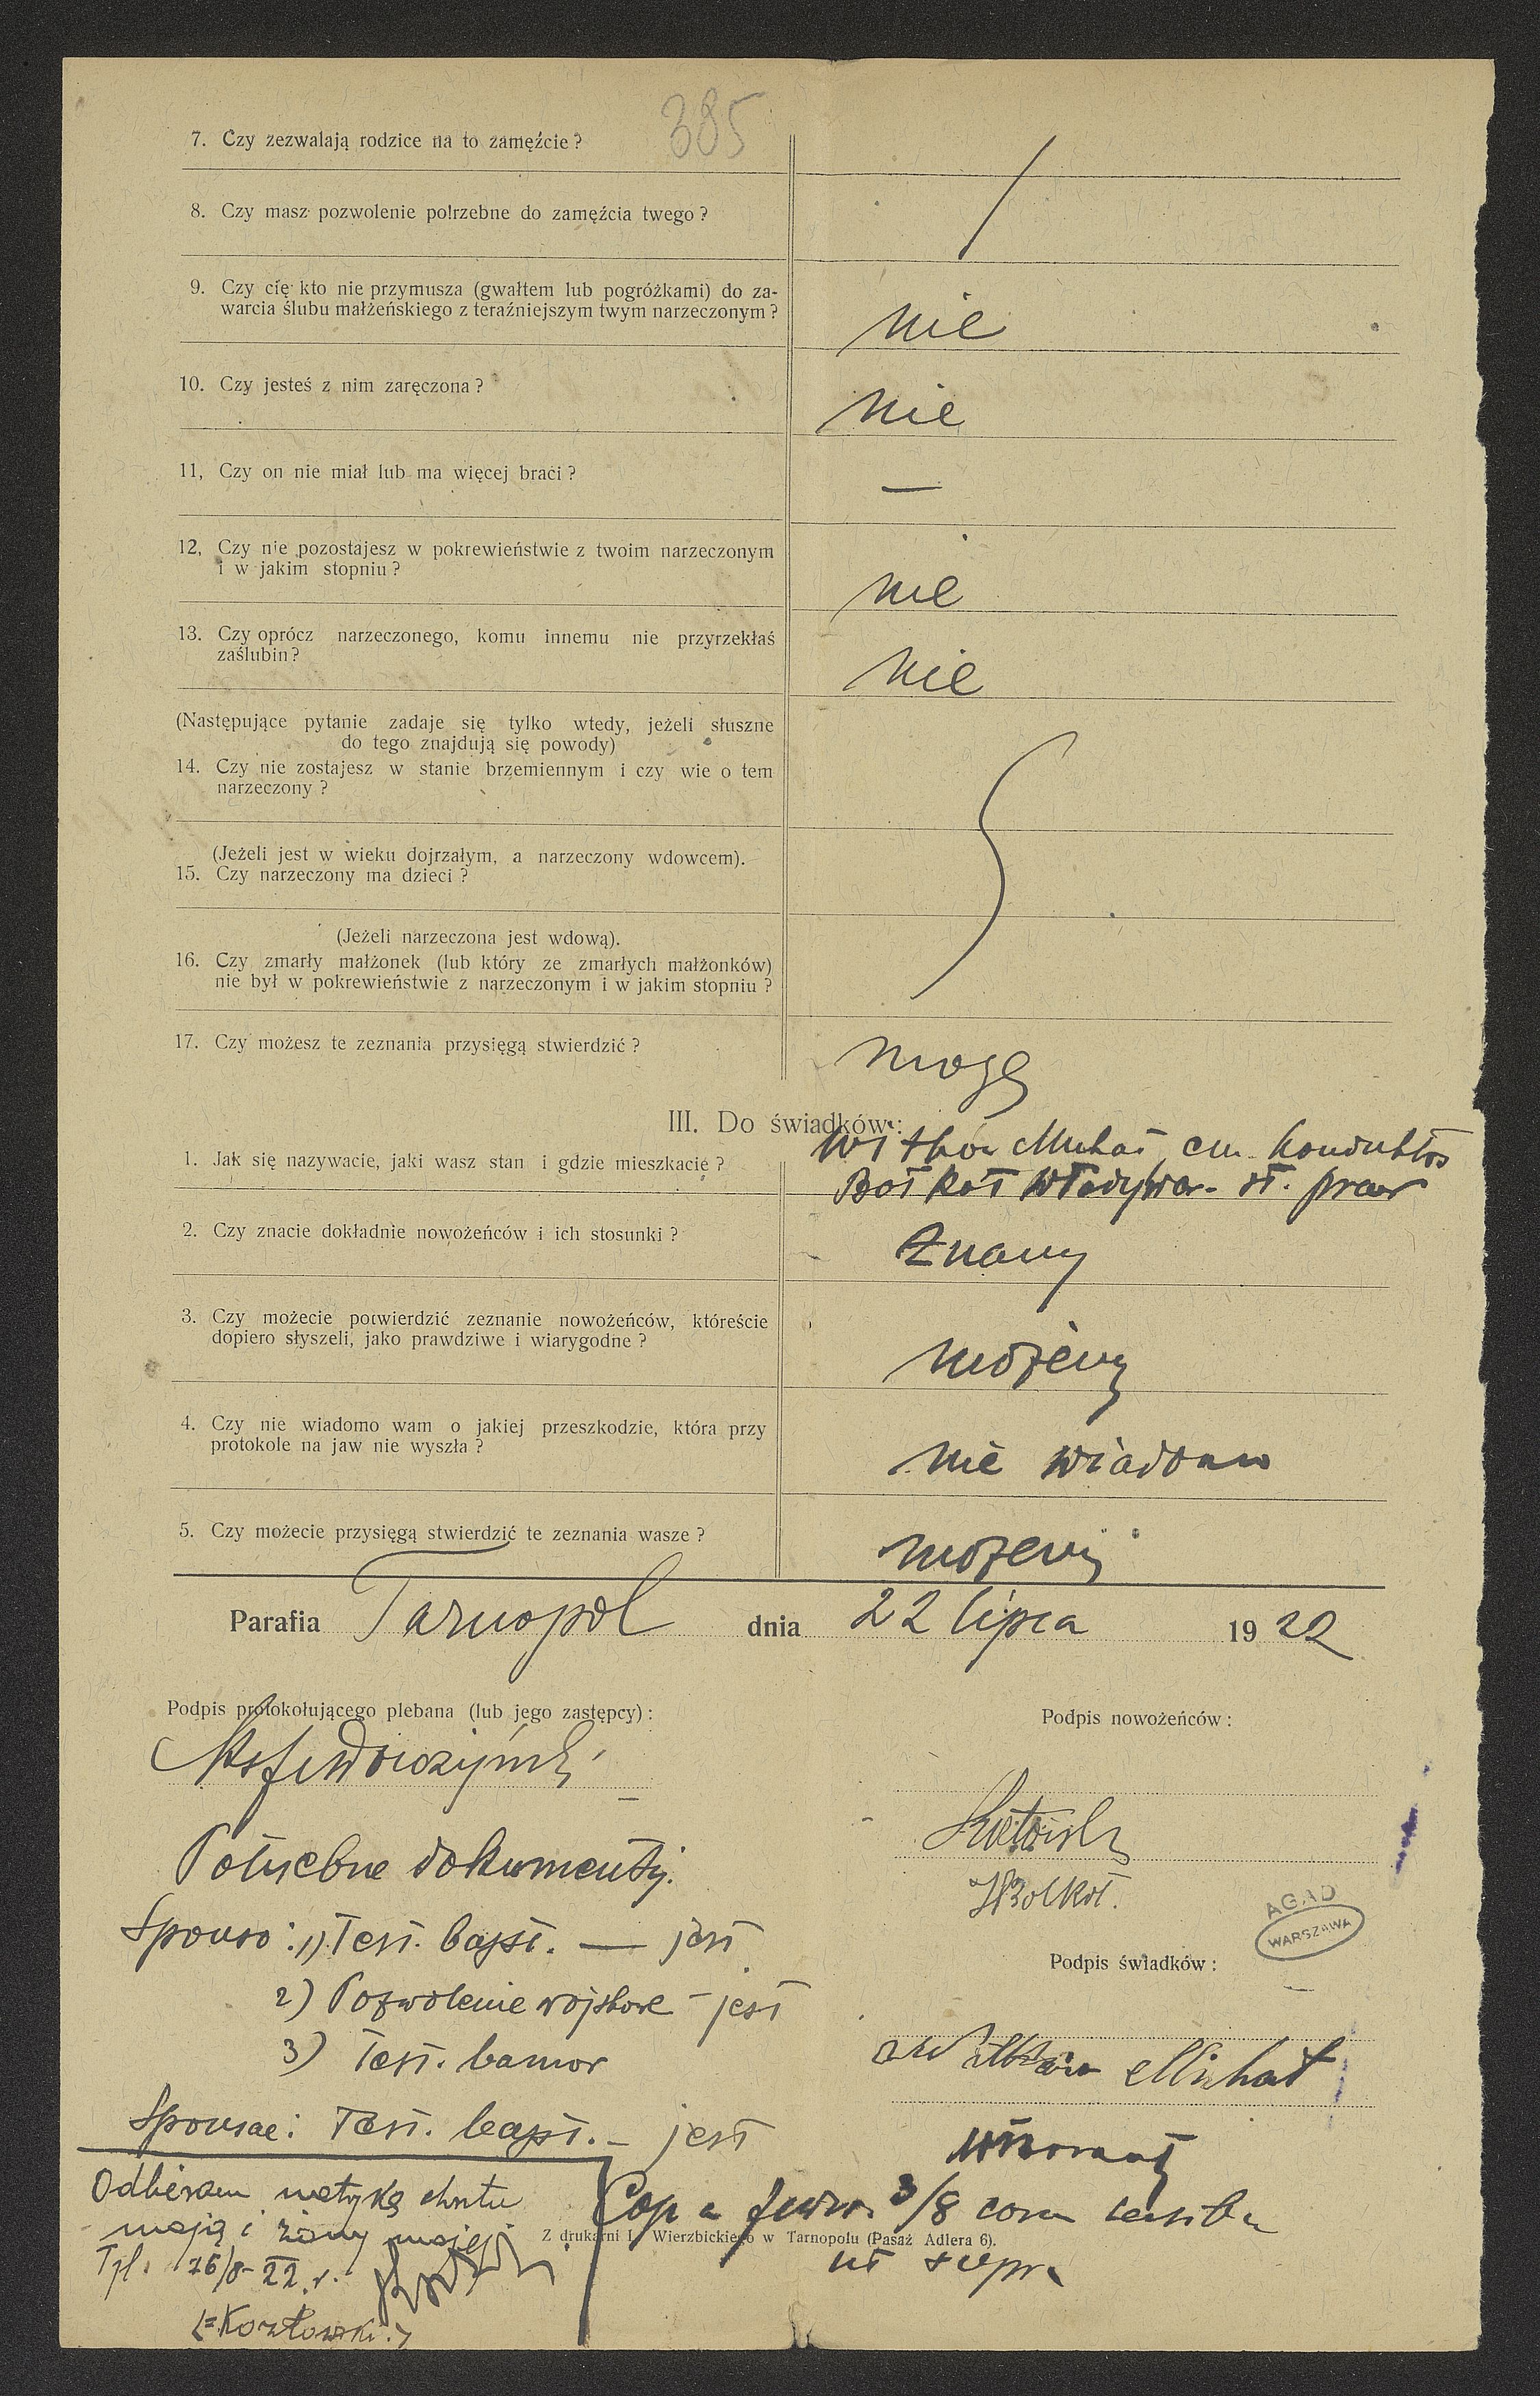 385
7. Czy zezwalają rodzice na to zamęźcie?
8. Czy masz pozwolenie potrzebne do zamęźcia twego?
9. Czy cię kto nie przymusza (gwałtem lub pogróżkami) do za-
warcia ślubu małżeńskiego z teraźniejszym twym narzeczonym?
nie
10. Czy jesteś z nim zaręczona?
nie
11, Czy on nie miał lub ma więcej braci?
—
12, Czy nie pozostajesz w pokrewieństwie z twoim narzeczonym
i w jakim stopniu?
nie
13. Czy oprócz narzeczonego, komu innemu nie przyrzekłaś
zaślubin?
nie
(Następujące pytanie zadaje się tylko wtedy, jeżeli słuszne
do tego znajdują się powody)
14. Czy nie zostajesz w stanie brzemiennym i czy wie o tem
narzeczony?
(Jeżeli jest w wieku dojrzałym, a narzeczony wdowcem).
15. Czy narzeczony ma dzieci?
(Jeżeli narzeczona jest wdową).
16. Czy zmarły małżonek (lub który ze zmarłych małżonków)
nie był w pokrewieństwie z narzeczonym i w jakim stopniu?
17. Czy możesz te zeznania przysięgą stwierdzić?
mogę
III. Do świadków:
1. Jak się nazywacie, jaki wasz stan i gdzie mieszkacie?
Witków Michał em. konduktor
2. Czy znacie dokładnie nowożeńców i ich stosunki?
Znamy
3. Czy możecie potwierdzić zeznanie nowożeńców, któreście
dopiero słyszeli, jako prawdziwe i wiarygodne?
możemy
4. Czy nie wiadomo wam o jakiej przeszkodzie, która przy
protokole na jaw nie wyszła?
nie wiadomo
5. Czy możecie przysięgą stwierdzić te zeznania wasze?
możemy
Parafia Tarnopol dnia 22 lipca 1922
Podpis protokołującego plebana (lub jego zastępcy):
Podpis nowożeńców:
Potrzebne dokumenty.
Sponso: 1) Test. bapt. — jest
2) Pozwolenie wojskowe - jest
3) Test. bannor
Sponsae: Test. bapt. - jest
AGAD
WARSZAWA
Podpis świadków:
Witków Michał
Odbieram metrykę chrztu
moją i żony mojej
Tpl. 16/8-22 r.
(=Kozłowski.)
3/8 coram testibus
ut supra
Z drukarni L. Wierzbickiego w Tarnopolu (Pasaż Adlera 6).